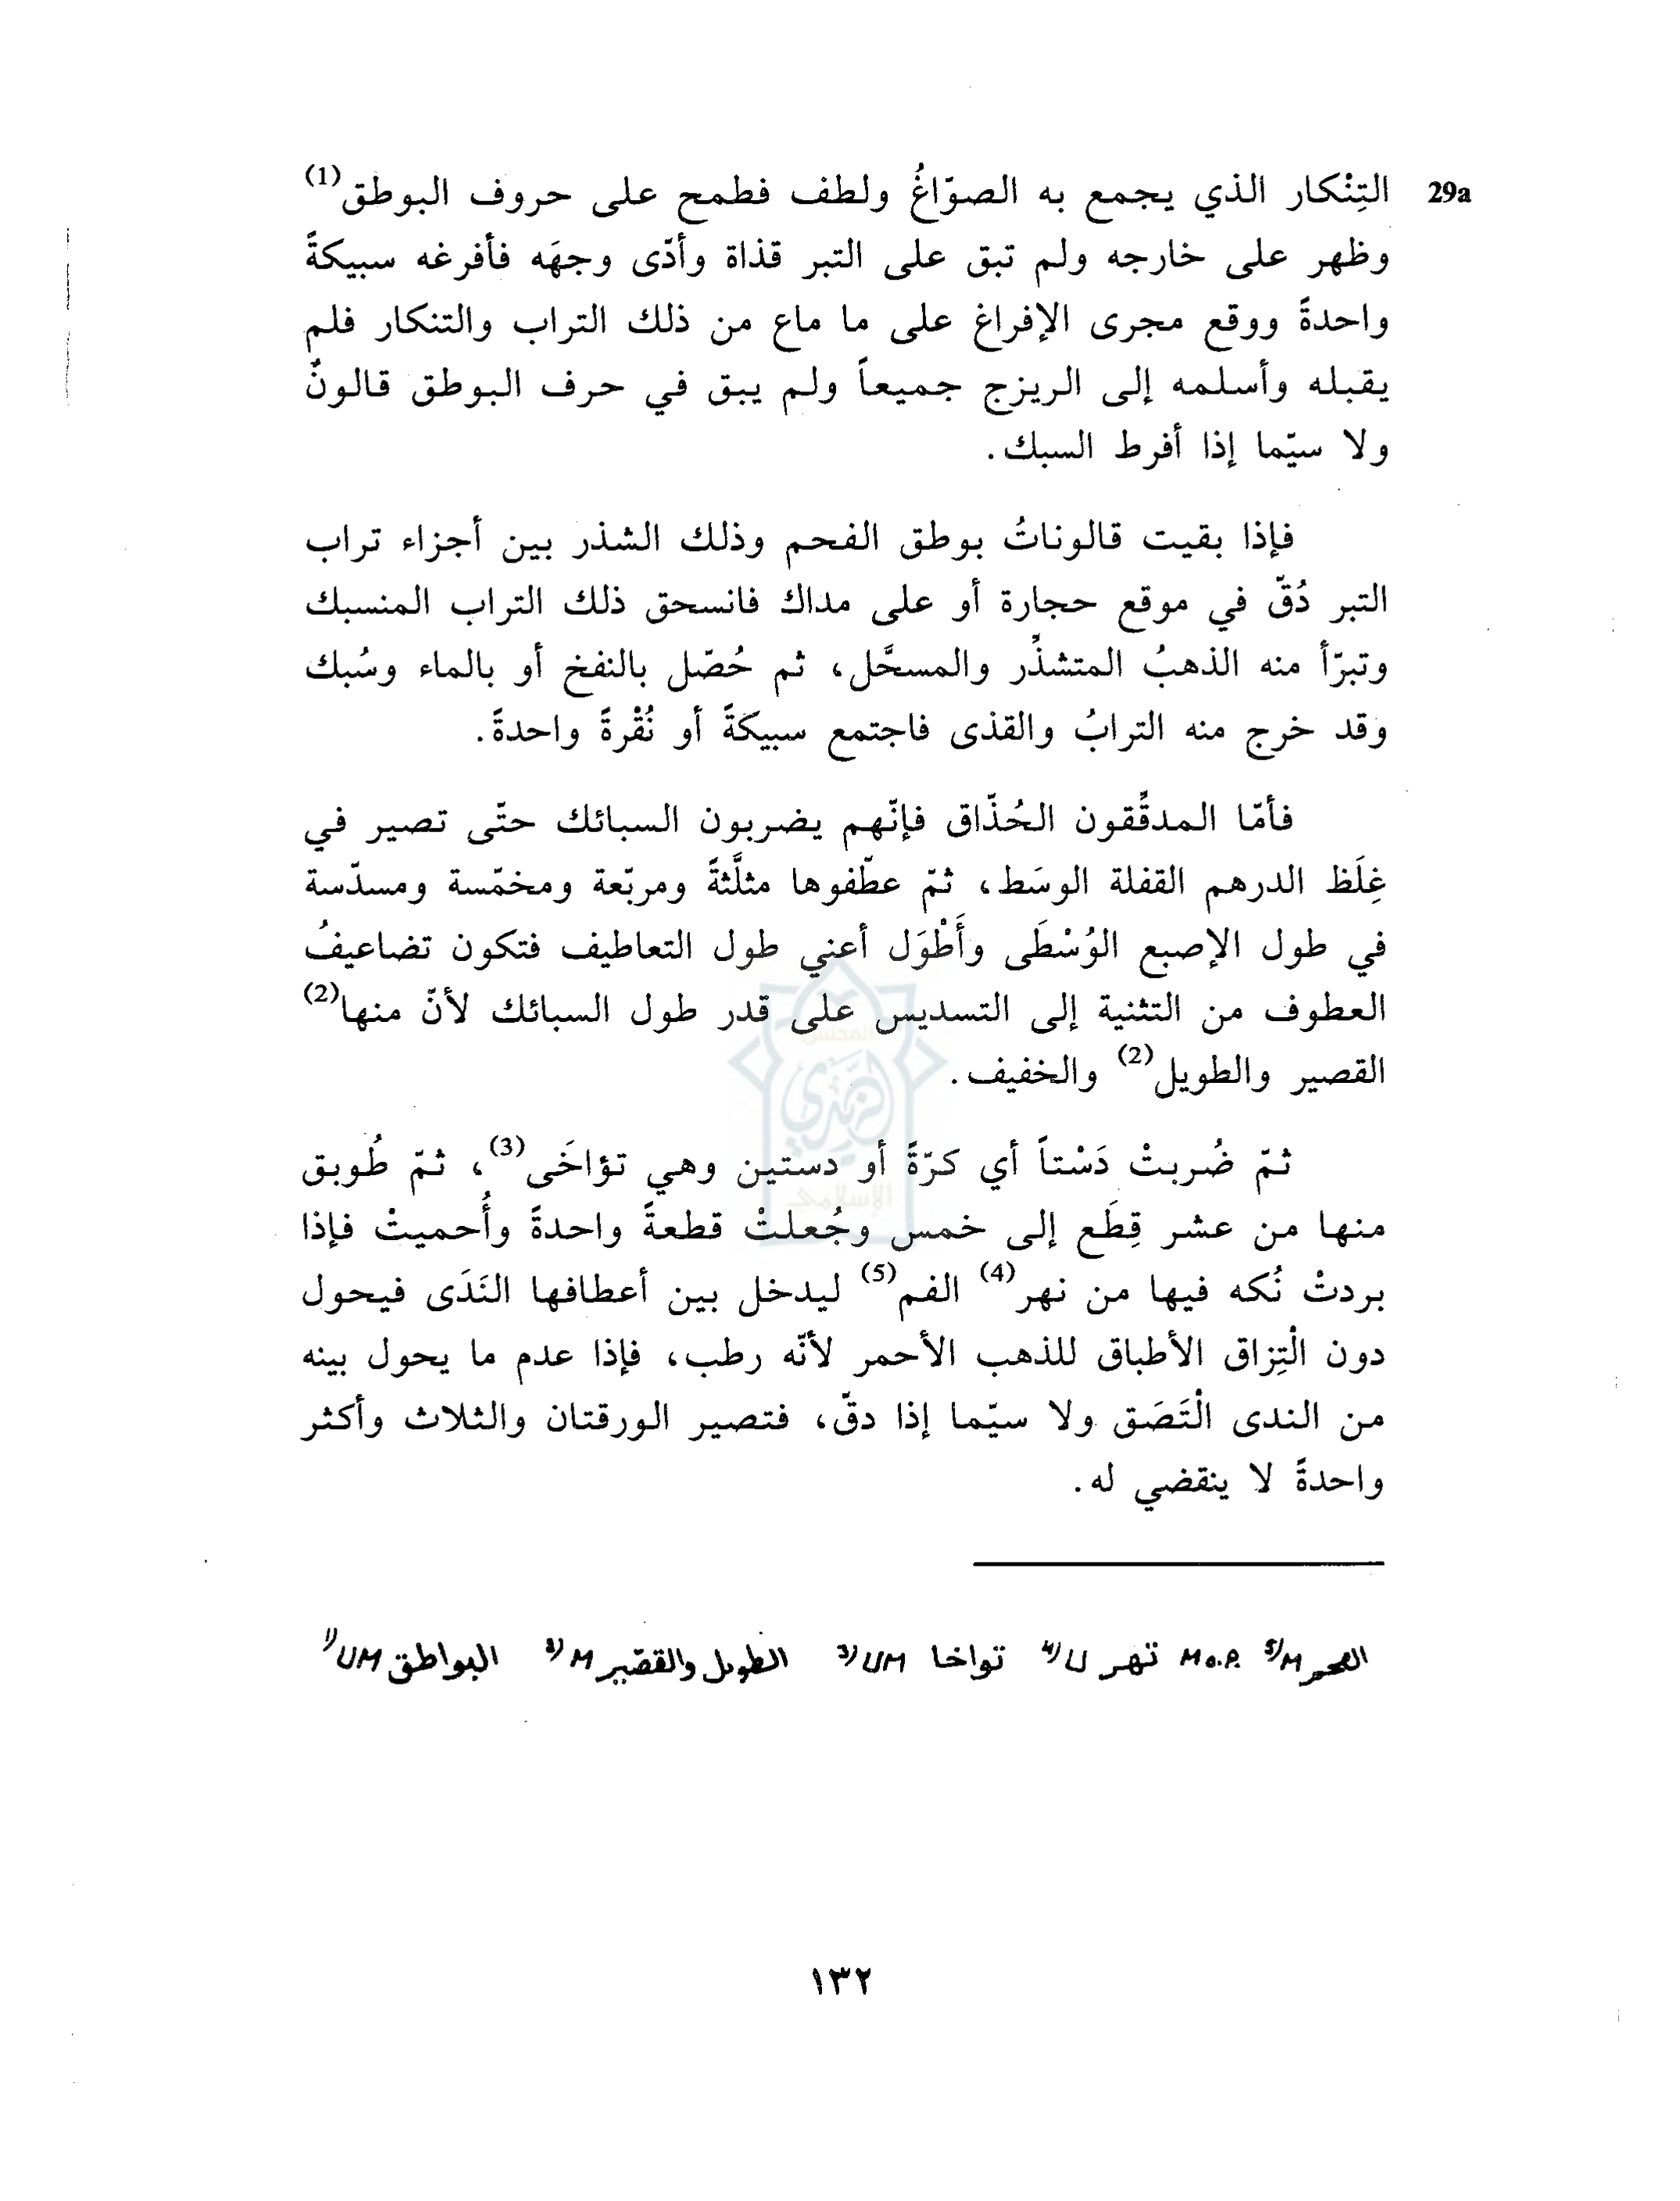 29a التِنْكار الذي يجمع به الصوّاغُ ولطف فطمح على حروف البوطق(1)
وظهر على خارجه ولم تبق على التبر قذاة وأدّى وجهَه فأفرغه سبيكةً
واحدةً ووقع مجرى الإفراغ على ما ماع من ذلك التراب والتنكار فلم
يقبله وأسلمه إلى الريزج جميعاً ولم يبق في حرف البوطق قالونٌ
ولا سيّما إذا أفرط السبك.
فإذا بقيت قالوناتُ بوطق الفحم وذلك الشذر بين أجزاء تراب
التبر دُقّ في موقع حجارة أو على مداك فانسحق ذلك التراب المنسبك
وتبرّأ منه الذهبُ المتشذِّر والمسحَّل، ثم حُصّل بالنفخ أو بالماء وسُبك
وقد خرج منه الترابُ والقذى فاجتمع سبيكةً أو نُقْرةً واحدةً.
فأمّا المدقِّقون الحُذّاق فإنّهم يضربون السبائك حتّى تصير في
غِلَظ الدرهم القفلة الوسَط، ثمّ عطّفوها مثلَّثةً ومربّعة ومخمّسة ومسدّسة
في طول الإصبع الوُسْطَى وأَطْوَل أعني طول التعاطيف فتكون تضاعيفُ
العطوف من التثنية إلى التسديس على قدر طول السبائك لأنّ منها(2)
القصير والطويل(2) والخفيف.
ثمّ ضُربتْ دَسْتاً أي كرّةً أو دستين وهي تؤاخَى(3)، ثمّ طُوبق
منها من عشر قِطَع إلى خمس وجُعلتْ قطعةً واحدةً وأُحميتْ فإذا
بردتْ نُكه فيها من نهر(4) الفم(5) ليدخل بين أعطافها النَدَى فيحول
دون الْتِزاق الأطباق للذهب الأحمر لأنّه رطب، فإذا عدم ما يحول بينه
من الندى الْتَصَق ولا سيّما إذا دقّ، فتصير الورقتان والثلاث وأكثر
واحدةً لا ينقضي له.
1) UM البواطق 2) M الطويل والقصير 3) UM تواخا 4) U تهر M o.P. 5) M
١٣٢